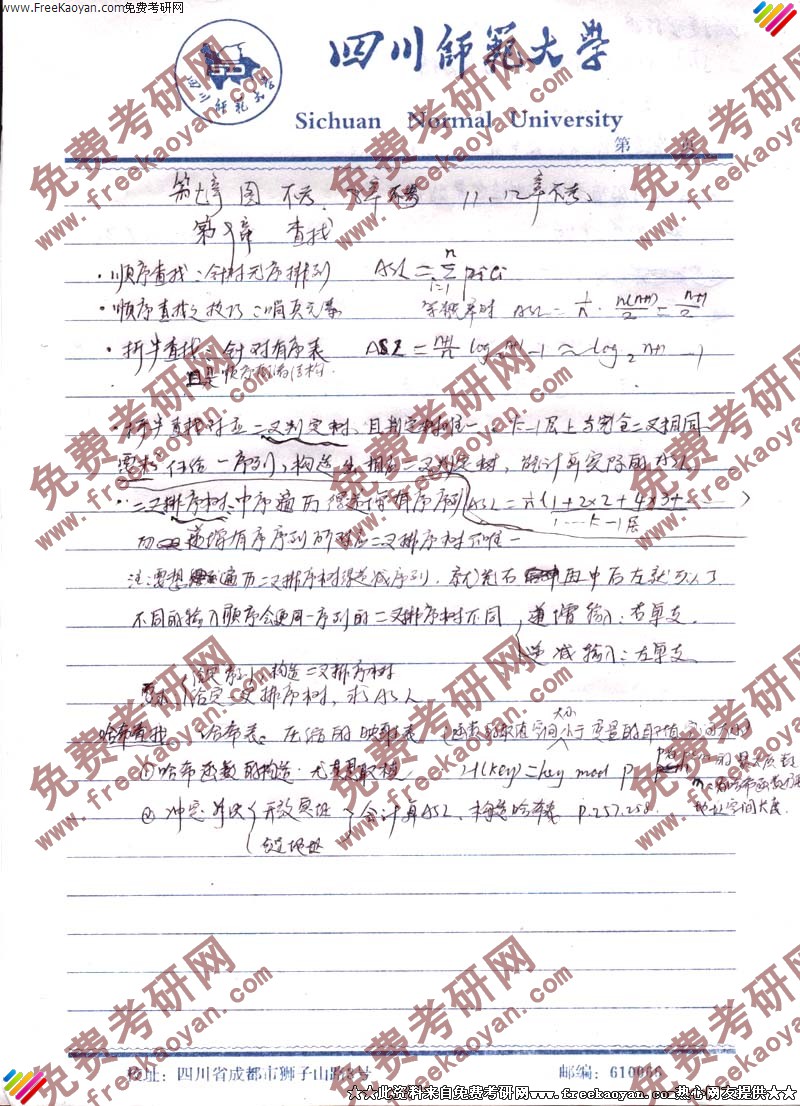 www.FreeKaoyan.com免费考研网
四川師範大學
四川師範大学
Sichuan Normal University
第 页
第七章 图 不考、8章不考 11、12章不考、
第9章 查找
·顺序查找:针对无序排列 ASL=∑pici
n
i=1
·顺序查找之技巧:哨兵元素 等概率时 ASL=1/n·n(n+1)/2=n+1/2
·折半查找:针对有序表 ASL=n+1/n log₂n+1 -1≈log₂n+1 -1
且是顺序存储结构.
·折半查找对应二叉判定树、且判定树唯一 k-1层上与完全二叉相同
要求任给一序列,构造出相应二叉判定树,能计算实际的ASL
·二叉排序树:中序遍历得递增有序序列 ASL=1/n(1+2×2+4×3+……)
1…k-1层
递增有序序列所对应二叉排序树不唯一
注:要想遍历二叉排序树得递减序列,就先右再中后左就可以了
不同的输入顺序会使同一序列的二叉排序树不同
递增输入:右单支.
递减输入:左单支
要求
给定序列,构造二叉排序树
给定二叉排序树,求ASL
哈希查找 哈希表:压缩的映射表(函数的取值空间大小小于变量的取值空间大小)
①哈希函数的构造·尤其是取模 H(key)=key mod p
地址空间大度.
②冲突解决
开放定址
链地址
会计算ASL、构造哈希表 P.257.258.
校址:四川省成都市狮子山路3号 邮编:610066
★★此资料来自免费考研网www.freekaoyan.com热心网友提供★★
免费考研网
www.freekaoyan.com